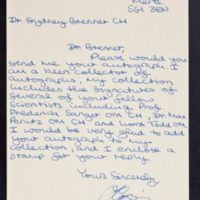 Herts
SG1 3BN
Dr Sydney Brenner CH
Dr Brenner,
Please would you
Send me your autograph I
am a keen collector of
autographs, my collection
includes the signatures of
several of your fellow
Scientists including Prof.
Frederick Sanger OM CH, Dr Max
Perutz OM CH and Lord Todd OM
I would be very glad to add
your autograph to my
Collection, and I enclose a
stamp for your reply.
Yours Sincerely,